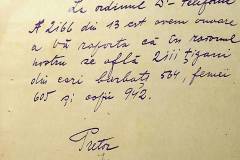 La ordinul Dv. telefonic
# 2166 din 13 est avem onoare
a vă raporta că în raionul
nostru se află 2111 țigani
din cari bărbați 564, femei
605 și copii 942.
Pretor